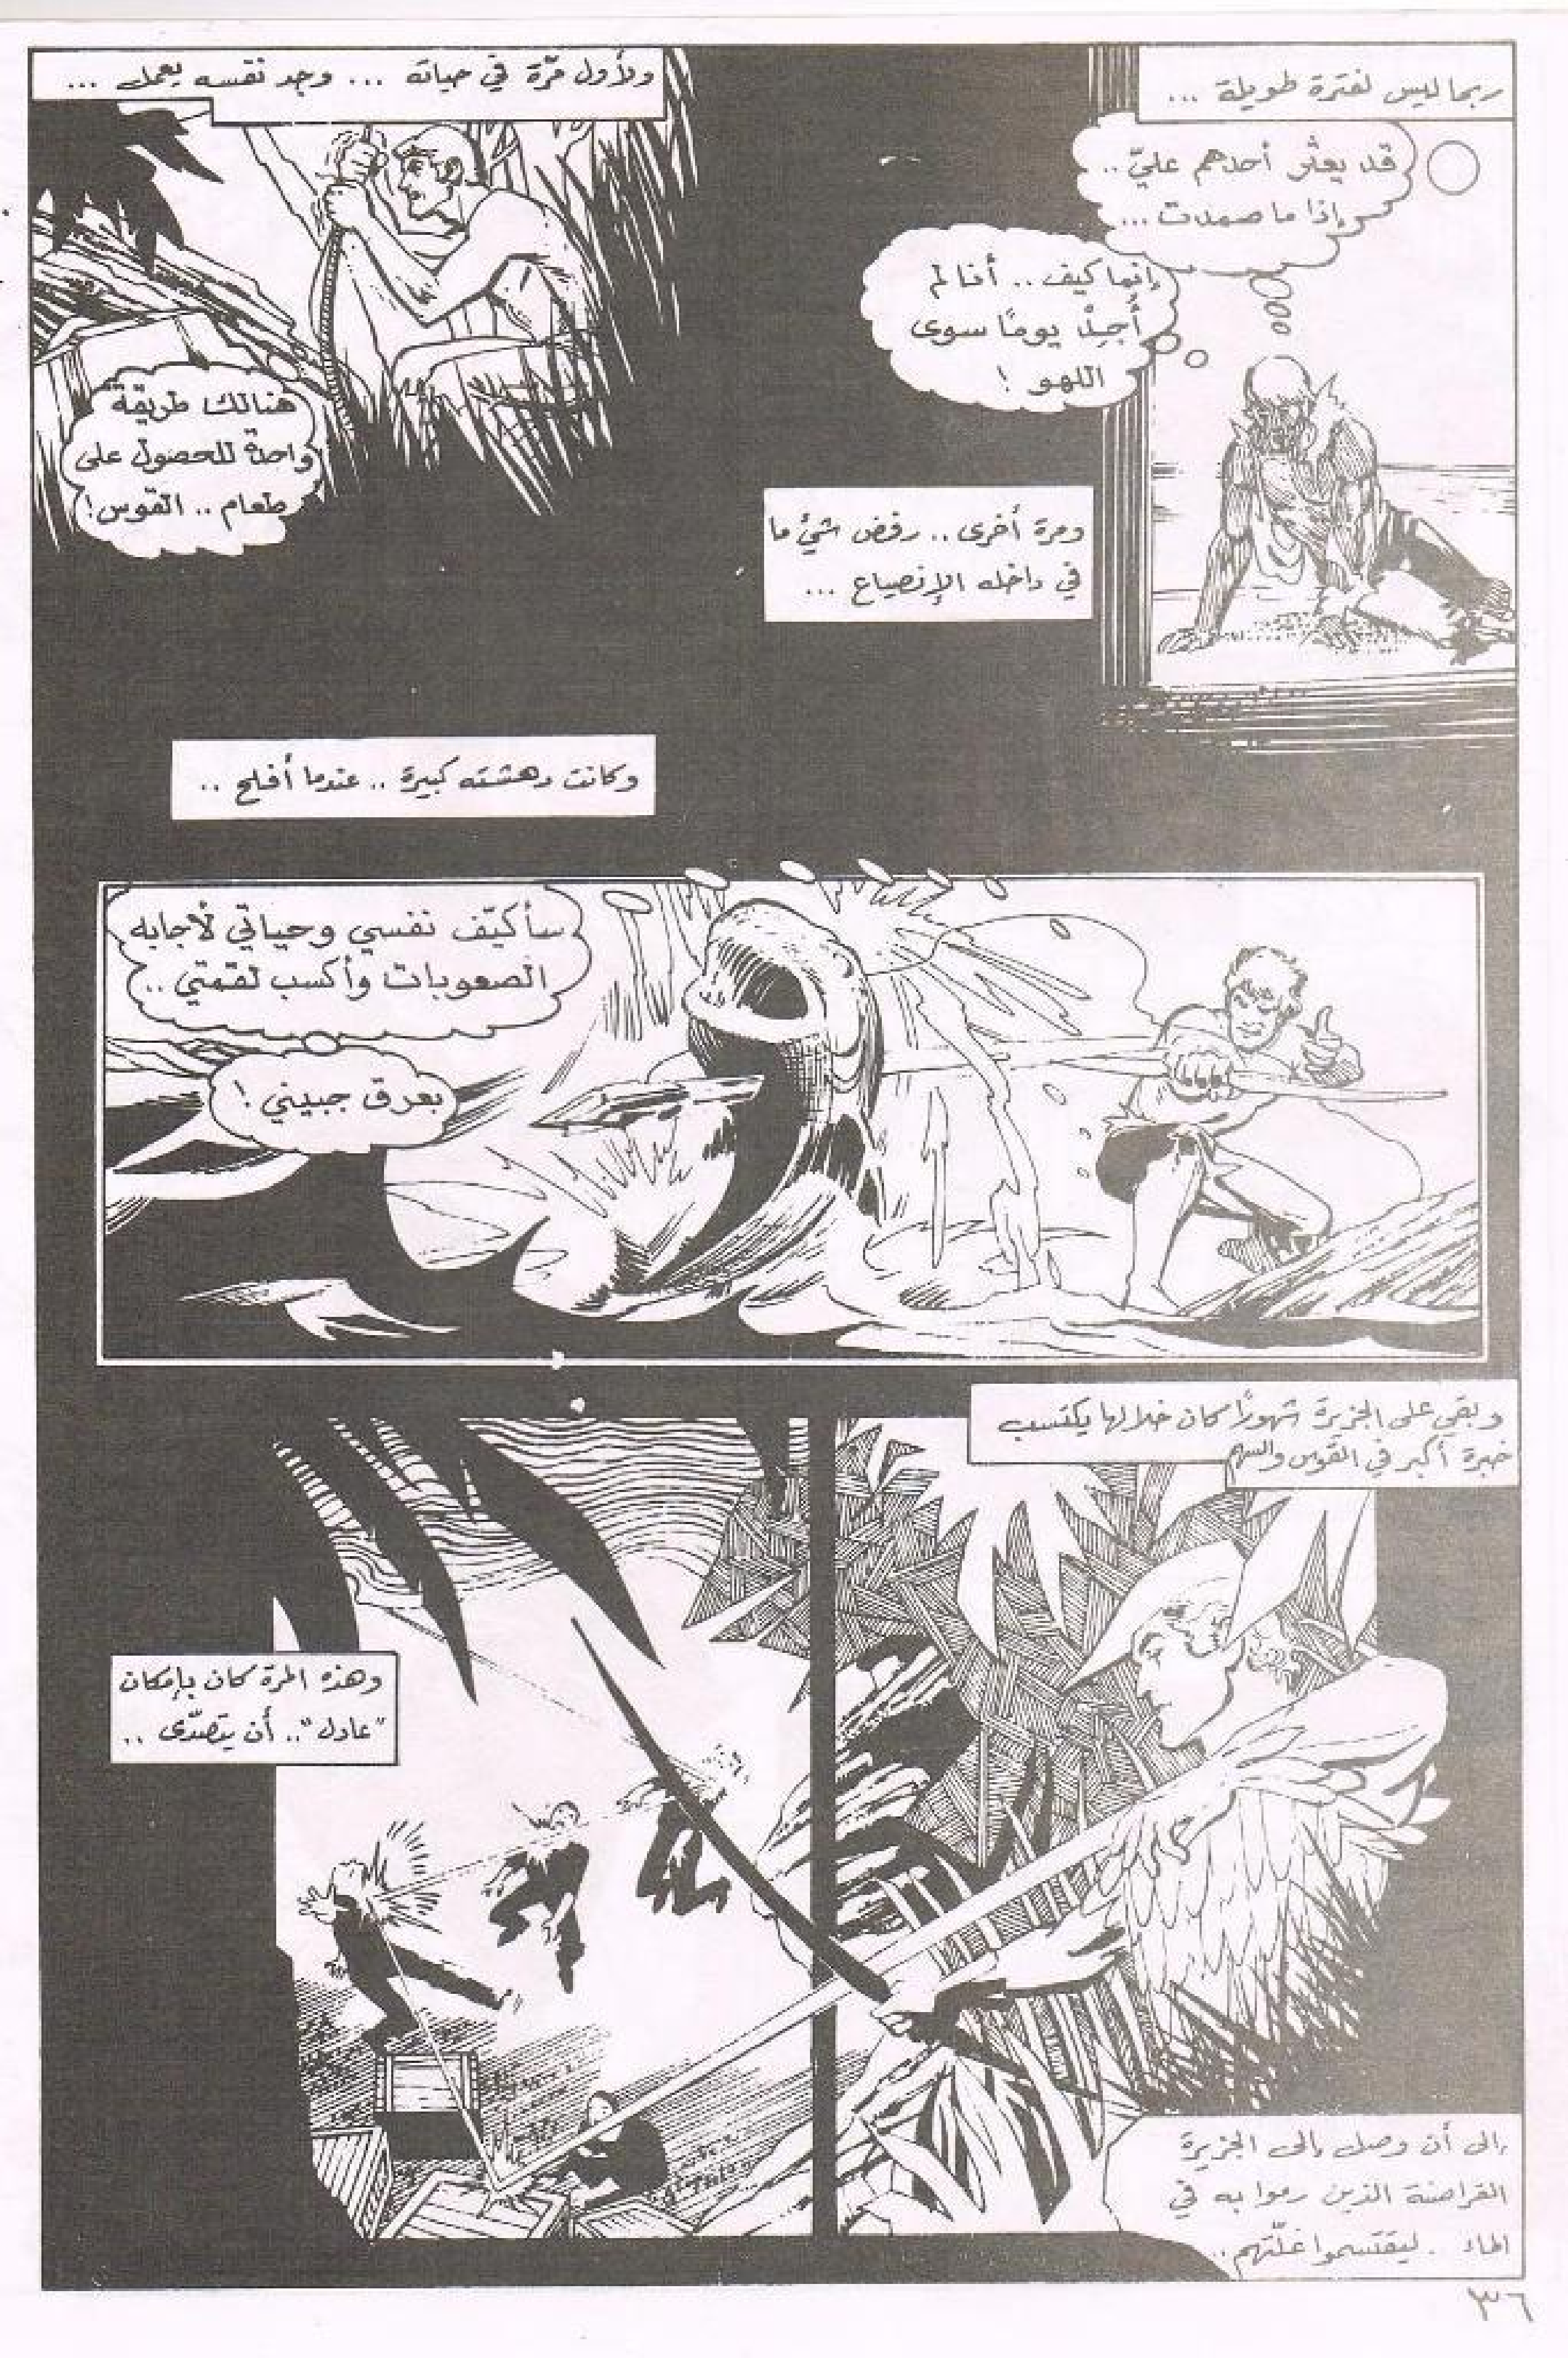 ربما ليس لفترة طويلة ...
قد يعثر أحدهم عليّ ..
إذا ما صمدت ...
إنما كيف .. أنا لم
أُجِدْ يومًا سوى
اللهو !
ومرة أخرى .. رفض شيء ما
في داخله الإنصياع ...
ولأول مرّة في حياته ... وجد نفسه يعمل ...
هنالك طريقة
واحدة للحصول على
طعام .. القوس !
وكانت دهشته كبيرة .. عندما أفلح ..
سأكيّف نفسي وحياتي لأجابه
الصعوبات وأكسب لقمتي ..
بعرق جبيني !
وبقي على الجزيرة شهورًا كان خلالها يكتسب
خبرة أكبر في القوس والسهم
إلى أن وصل إلى الجزيرة
القراصنة الذين رموا به في
الماء . ليقتسموا غلّتهم ..
وهذه المرة كان بإمكان
"عادل" .. أن يتصدّى ..
٣٦